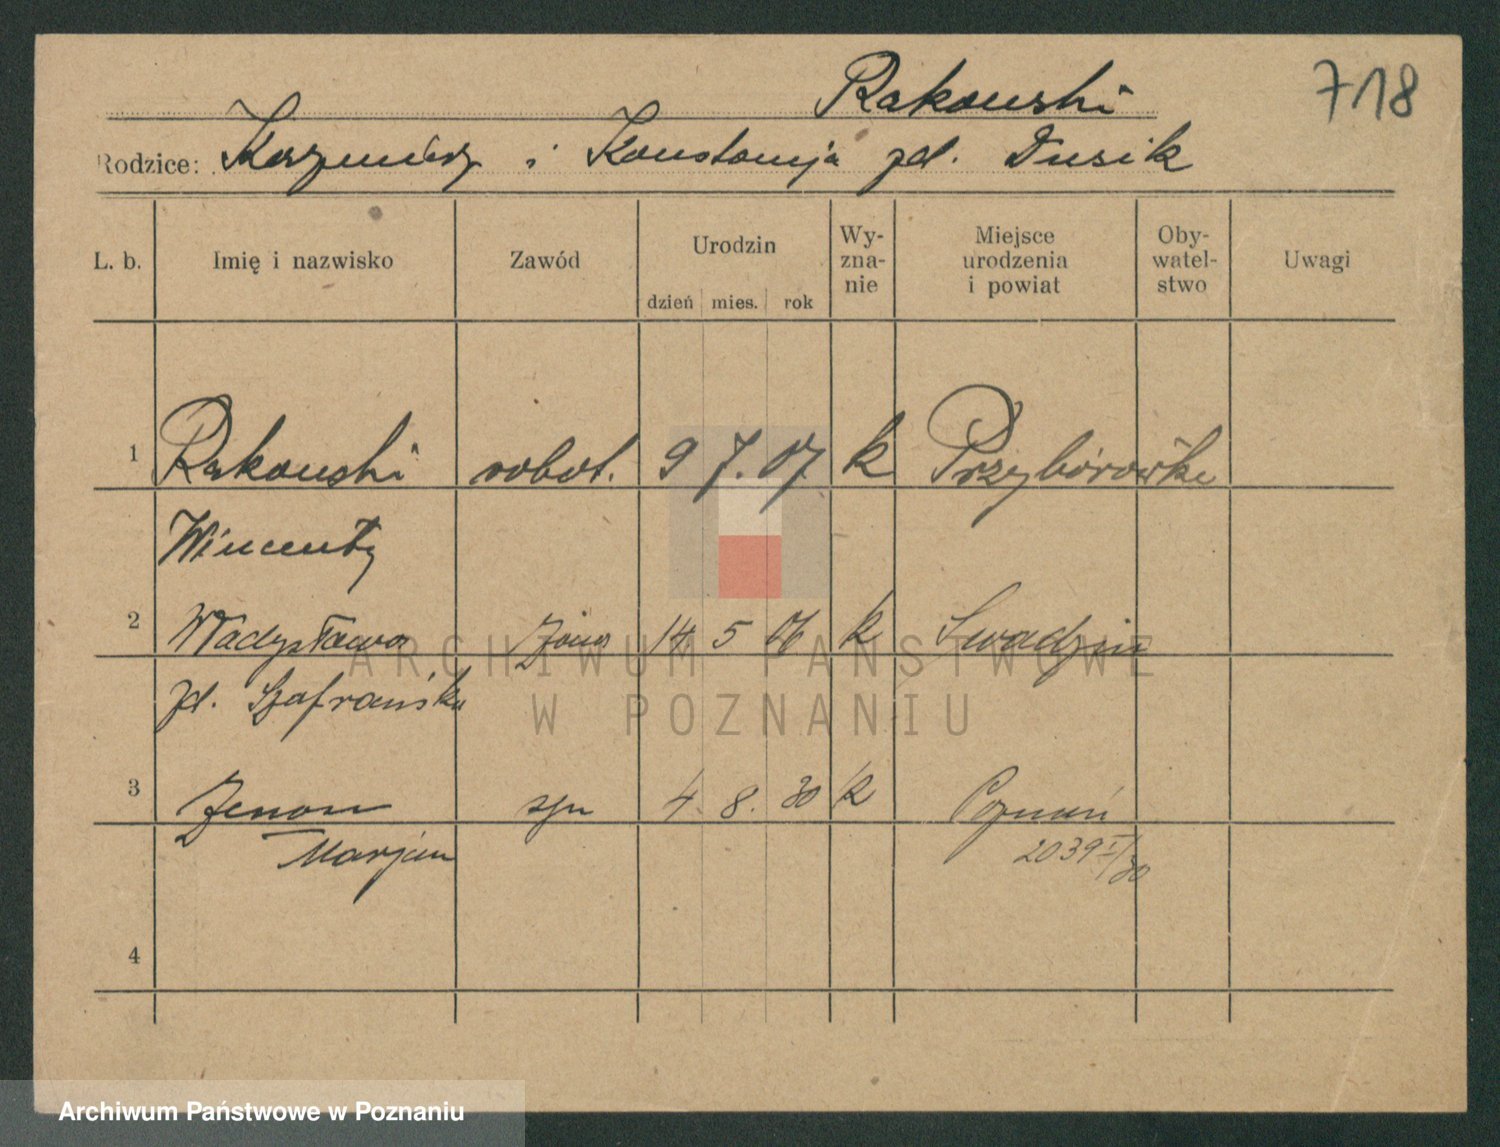 Rakowski
718
Rodzice: Kazimierz i Konstancja zd. Dusik
L. b. Imię i nazwisko Zawód Urodzin dzień mies. rok Wy-zna-nie Miejsce urodzenia i powiat Oby-watel-stwo Uwagi
1 Rakowski robot. 9 7. 07 k Przyborówko
Wincenty
2 Władysława żona 14 5 06 k Swadzim
zd. Szafrańska
3 Zenon syn 4. 8. 30 k Poznań
Marjan 2039
4
ARCHIWUM PAŃSTWOWE
W POZNANIU
Archiwum Państwowe w Poznaniu